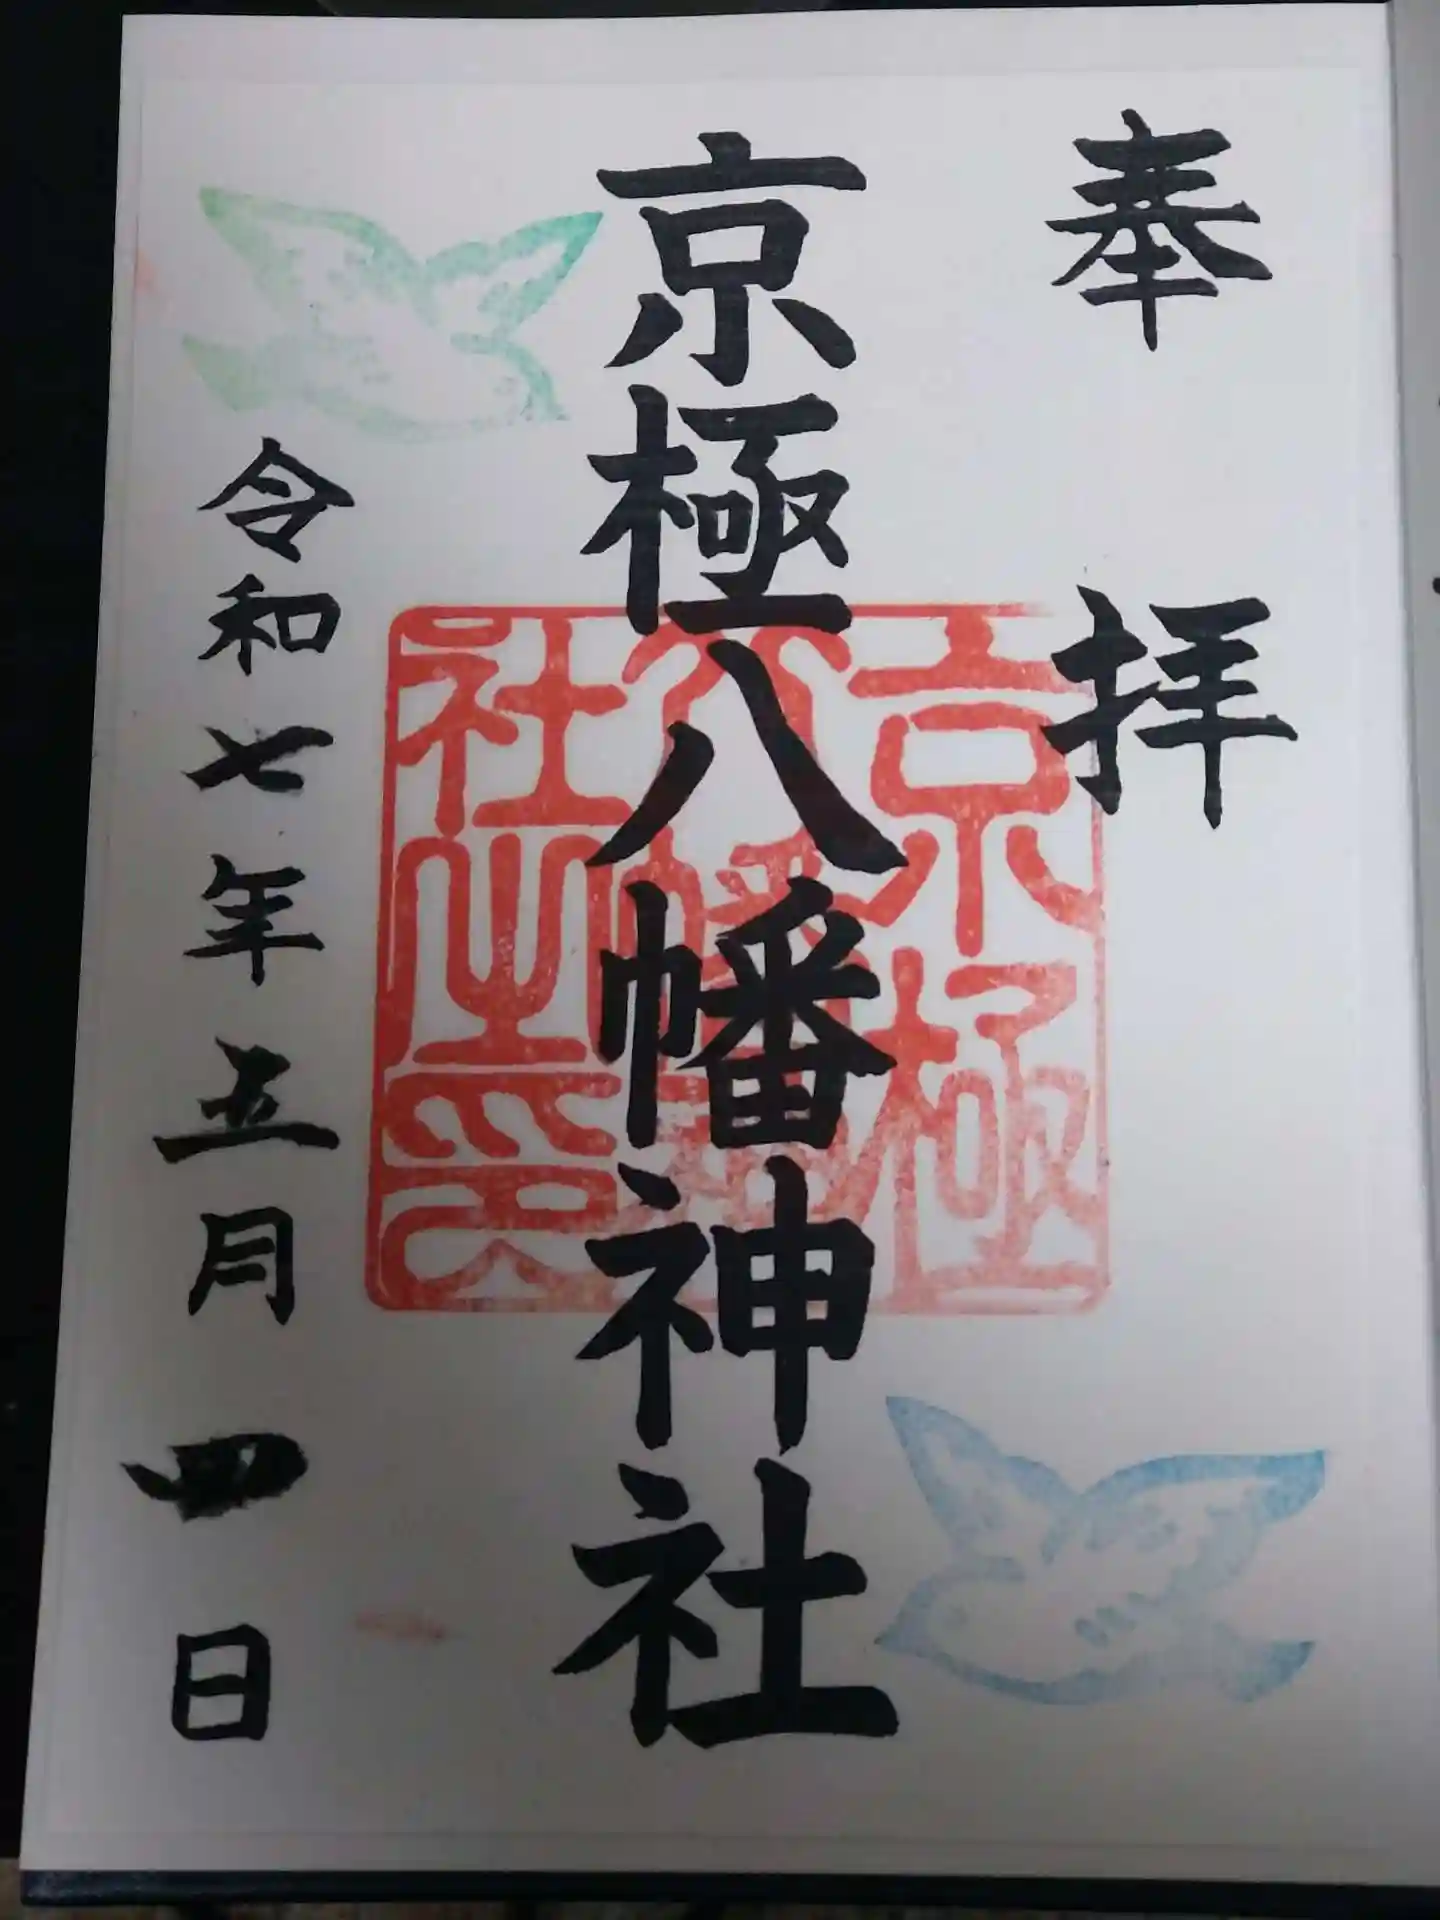 奉拝
京極八幡神社
京極
八幡神
社之印
令和七年五月四日